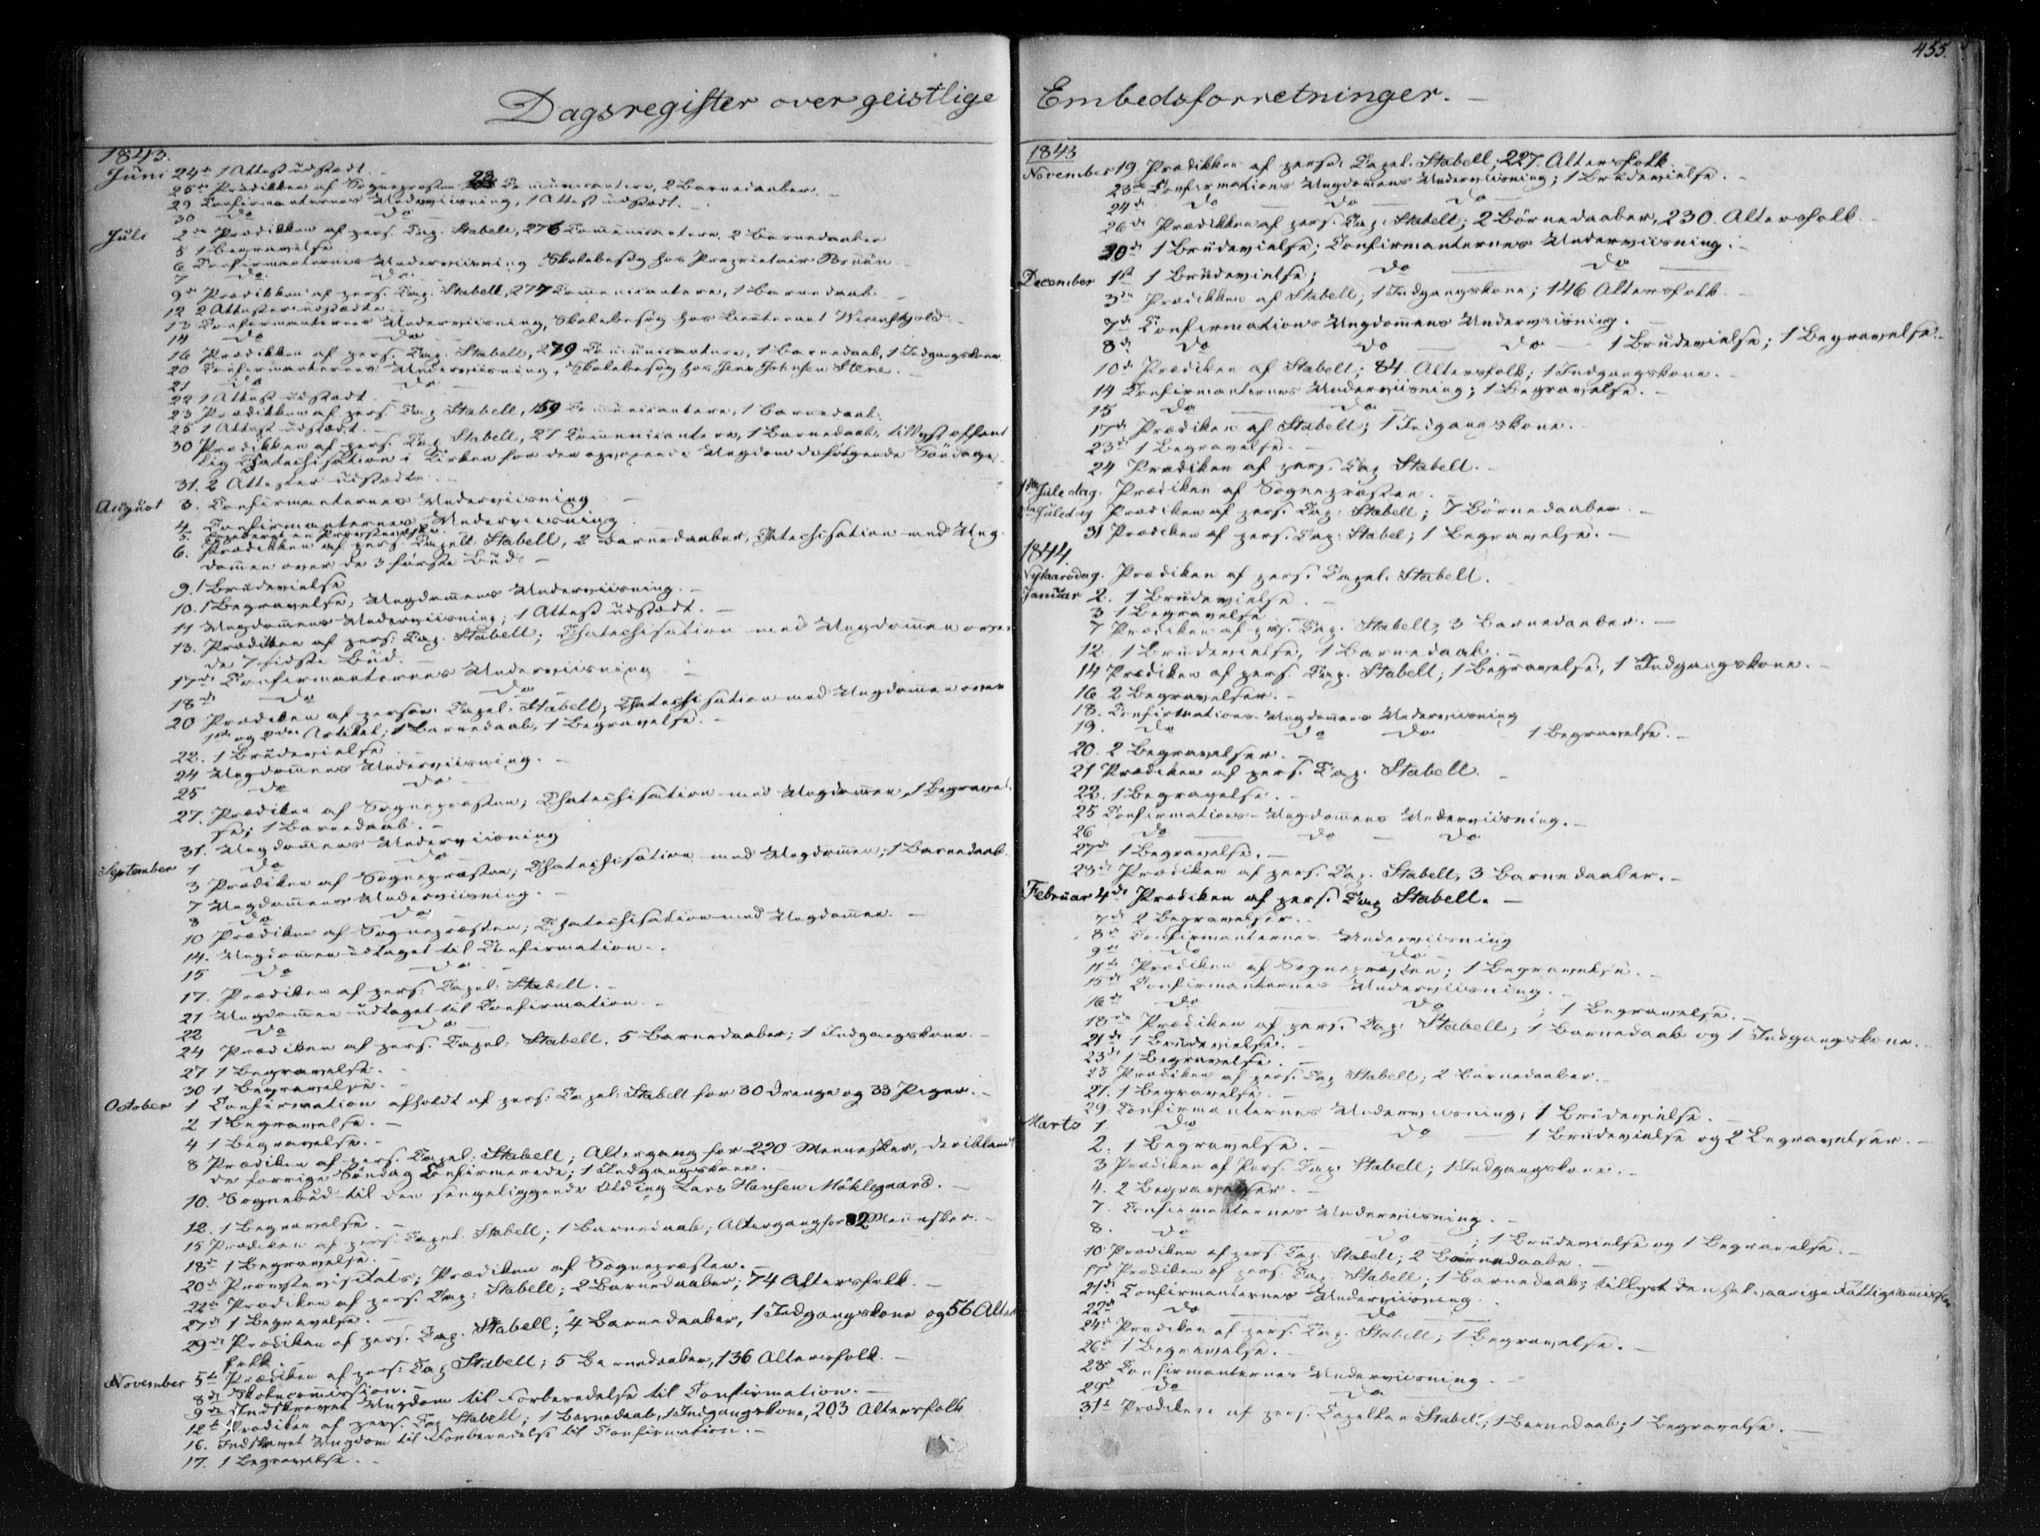 455.
Dagsregister over geistlige Embedsforretninger. —
1843.
Juni 24de 1 Attest udstædt.
25de Prædikken af Sognepræsten 23 Communicantere, 2 Barnedaaber.
29 Confirmanternes Underviisning, 1 Attest udstædt. —
30 do do
Juli 2den Prædikken af pers. Cap. Stabell, 276 Communicantere. 2 Barnedaaber
5 1 Begravelse
6 Confirmanternes Underviisning Skolebesøg hos Proprietair
7 do do
9de Prædikken af pers. Cap. Stabell, 277 Communicantere, 1 Barnedaab.
12 2 Attester udstædte
13 Confirmanternes Underviisning, Skolebesøg hos Lieutenant
14 do do
16 Prædikken af pers. Cap. Stabell, 279 Communicantere, 1 Barnedaab, 1 Indgangskone
20 Confirmanternes Underviisning, Skolebesøg hos Jens Johnsen
21 do do
22 1 Attest udstædt
23 Prædikken af pers. Cap. Stabell, 159 Communicantere, 1 Barnedaab.
25 1 Attest udstædt. —
30 Prædikken af pers. Cap. Stabell, 27 Communicantere, 1 Barnedaab, tillyst offent
lig Chatechisation i Kirken for den opvoxende Ungdom de følgende Søndage.
31. 2 Attester udstædte. —
August 3. Confirmanternes Underviisning —
4. Confirmanternes Underviisning
5. en
6. Prædikken af pers. Capell. Stabell, 2 Barnedaaber, Catechisation med Ung
dommen over de 3 første Bud. —
9. 1 Brudevielse
10. 1 Begravelse, Ungdommens Underviisning. —
11 Ungdommens Underviisning, 1 Attest udstædt. —
13. Prædiken af pers. Cap. Stabell; Chatechisation med Ungdommen over
de 7 sidste Bud. —
17de Confirmanternes Underviisning
18de do do
20 Prædiken af person. Capel. Stabell; Chatechisation med Ungdommen over
1ste og 2den Artikel; 1 Barnedaab, 1 Begravelse. —
22. 1 Brudevielse
24 Ungdommens Underviisning. —
25 do do
27. Prædiken af Sognepræsten; Chatechisation med Ungdommen, 1 Begravel
se; 1 Barnedaab. —
31. Ungdommens Underviisning
September 1 do do
3 Prædiken af Sognepræsten; Chatechisation med Ungdommen; 1 Barnedaab.
7 Ungdommens Underviisning. —
8 do do
10 Prædiken af Sognepræsten; Chatechisation med Ungdommen. —
14. Ungdommen udtaget til Confirmation. —
15 do do —
17. Prædiken af pers. Capel. Stabell. —
21 Ungdommen udtaget til Confirmation. —
22 do do —
24 Prædiken af pers. Capel. Stabell. 5 Barnedaaber; 1 Indgangskone. —
27 1 Begravelse. —
30 1 Begravelse. —
October 1 Confirmation afholdt af pers. Capel. Stabell for 30 Drenge og 33 Piger. —
2 1 Begravelse. —
4 1 Begravelse. —
8 Prædiken af pers. Capel. Stabell; Altergang for 220 Mennesker, deriblandt
de forrige Søndag Confirmerede; 1 Indgangskone. —
10. Sognebud til den sengeliggende Olding Lars Hansen Møklegaard. —
12. 1 Begravelse. —
15 Prædiken af pers. Capel. Stabell; 1 Barnedaab; Altergang for 82 Mennesker. —
18de 1 Begravelse. —
20de Provstevisitats; Prædiken af Sognepræsten. —
22de Prædiken af pers. Cap. Stabell; 2 Barnedaaber; 74 Altersfolk. —
27de 1 Begravelse. —
29de Prædiken af pers. Cap. Stabell; 4 Barnedaaber, 1 Indgangskone og 56 Alters
folk. —
November 5te Prædiken af pers. Cap. Stabell; 5 Barnedaaber, 136 Altersfolk. —
8de Skolecommission. —
9de Indskrevet Ungdom til Forberedelse til Confirmation. —
12te Prædiken af pers. Cap. Stabell; 1 Barnedaab, 1 Indgangskone, 203 Altersfolk
16. Indskrevet Ungdom til Forberedelse til Confirmation. —
17. 1 Begravelse. —
1843
November 19. Prædikken af perso. Capel. Stabell, 227 Altersfolk
23de Confirmations Ungdommens Underviisning; 1 Brudevielse. —
24de do do do —
26de Prædikken af pers. Cap. Stabell; 2 Børnedaaber, 230 Altersfolk —
30de 1 Brudevielse; Confirmanternes Underviisning. —
December 1ste 1 Brudevielse; do do
3die Prædikken af Stabell; 1 Indgangskone; 146 Altersfolk —
7de Confirmations Ungdommens Underviisning. —
8de do do do — 1 Brudevielse; 1 Begravelse. —
10de Prædiken af Stabell; 84 Altersfolk; 1 Indgangskone. —
14 Confirmanternes Underviisning; 1 Begravelse. —
15 do — do —
17de Prædiken af Stabell; 1 Indgangskone. —
23de 1 Begravelse. —
24 Prædiken af pers. Cap. Stabell. —
1ste Juledag. Prædiken af Sognepræsten. —
2den Juledag Prædiken af pers. Cap. Stabell; 7 Børnedaaber. —
31 Prædiken af pers. Cap. Stabel; 1 Begravelse. —
1844.
Nytaarsdag. Prædiken af pers. Capel. Stabell.
Januar 2. 1 Brudevielse. —
3 1 Begravelse
7 Prædiken af pers. Cap. Stabell; 3 Barnedaaber. —
12. 1 Brudevielse, 1 Barnedaab. —
14 Prædiken af pers. Cap. Stabell; 1 Begravelse, 1 Indgangskone. —
16 2 Begravelser. —
18. Confirmations-Ungdommens Underviisning
19. do do do 1 Begravelse. —
20. 2 Begravelser. —
21 Prædiken af pers. Cap. Stabell. —
22. 1 Begravelse. —
25 Confirmations-Ungdommens Underviisning. —
26 do — do — do
27de 1 Begravelse. —
28de Prædiken af pers. Cap. Stabell, 3 Barnedaaber. —
Februar 4de Prædiken af pers. Cap Stabell. —
7de 2 Begravelser. —
8de Confirmanternes Underviisning
9de do do —
11te Prædiken af Sognepræsten; 1 Begravelse. —
15de Confirmanternes Underviisning. —
16de do do ; 1 Begravelse. —
18de Prædiken af pers. Cap. Stabell; 1 Barnedaab og 1 Indgangskone. —
21de 1 Brudevielse. —
23de 1 Begravelse. —
25 Prædiken af pers. Cap Stabell; 2 Barnedaaber. —
27. 1 Begravelse. —
29. Confirmanternes Underviisning, 1 Brudevielse. —
Marts 1 do do — 1 Brudevielse og 2 Begravelser. —
2. 1 Begravelse. —
3 Prædiken af Pers. Cap. Stabell; 1 Indgangskone. —
4. 2 Begravelser. —
7. Confirmanternes Underviisning. —
8. do do ; 1 Brudevielse og 1 Begravelse. —
10. Prædiken af pers. Cap. Stabell; 2 Barnedaabe. —
17de Prædiken af pers. Cap. Stabell; 1 Barnedaab; tillyst den halvaarige Fattigcommission
21de Confirmanternes Underviisning. —
22de do do
24de Prædiken af pers. Cap. Stabell; 1 Begravelse. —
26de 1 Begravelse. —
28de Confirmanternes Underviisning. —
29de do do
31te Prædiken af pers. Capellan Stabell, 1 Barnedaab; 1 Begravelse. —